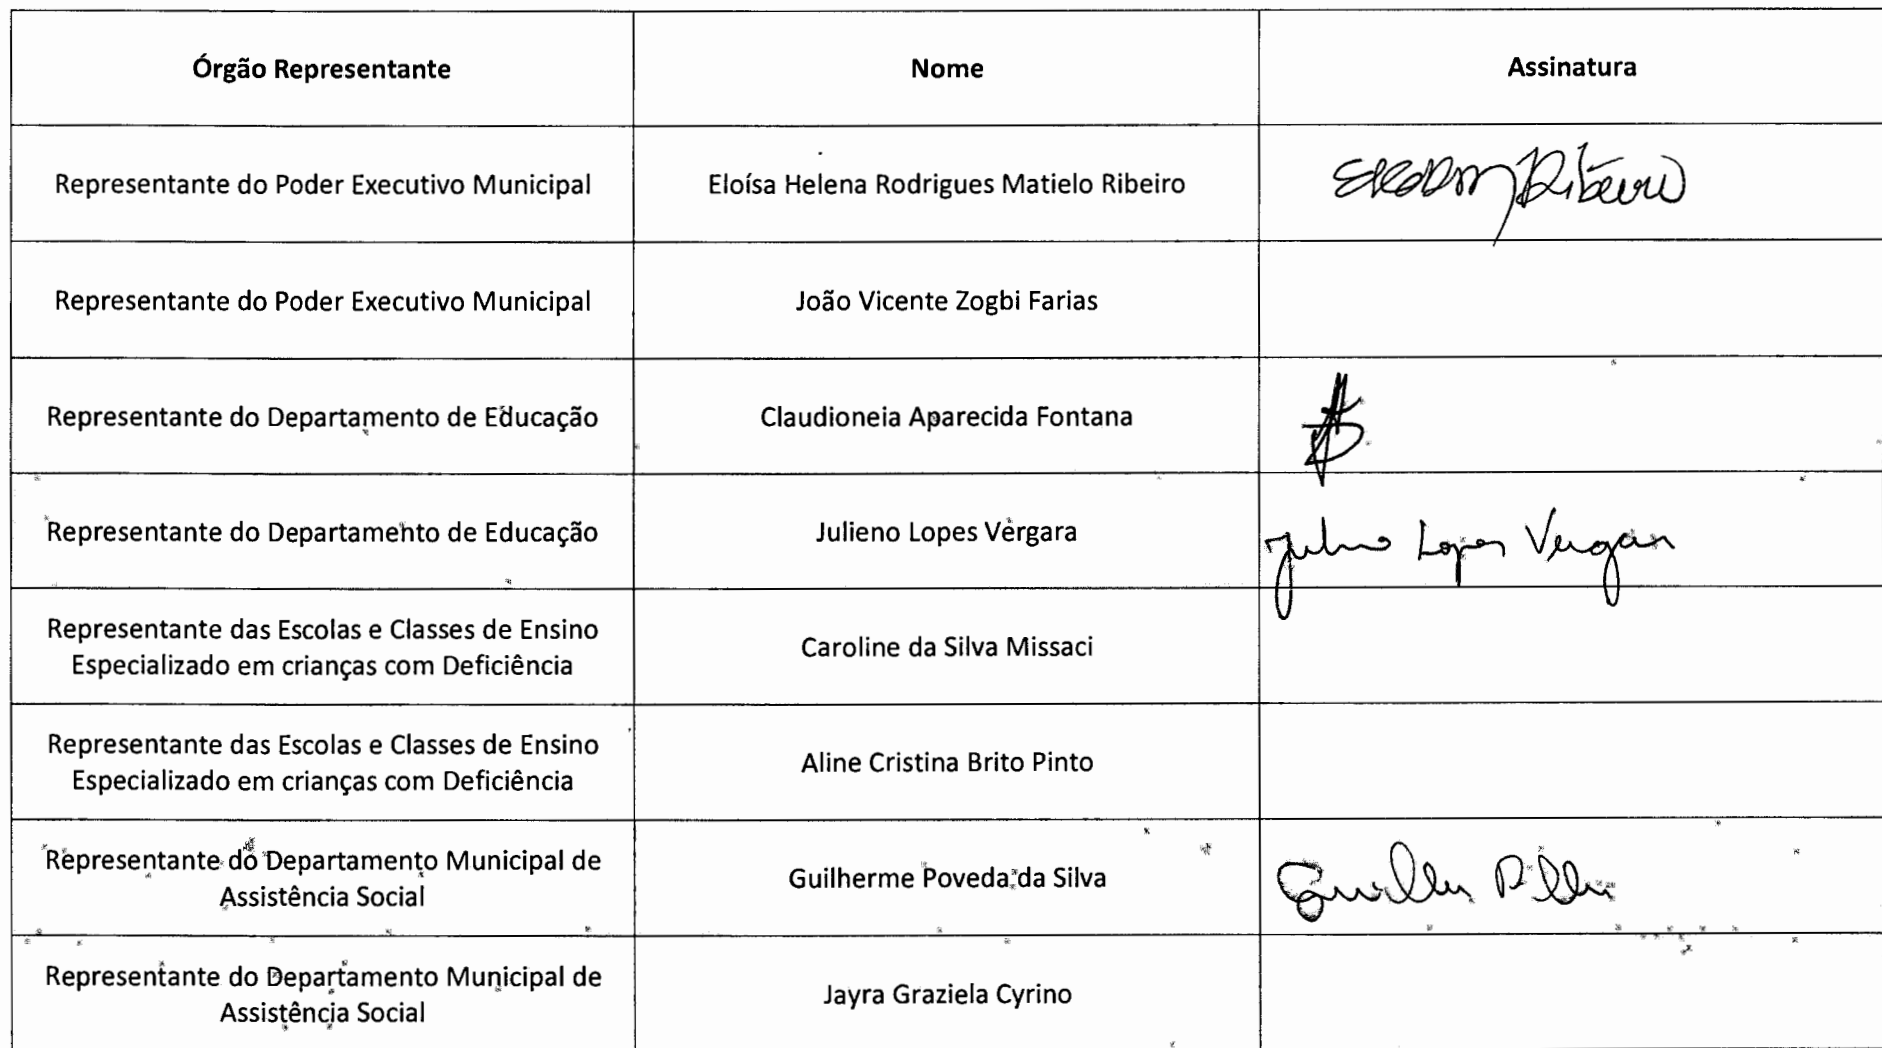 Órgão Representante
Nome
Assinatura
Representante do Poder Executivo Municipal
Eloísa Helena Rodrigues Matielo Ribeiro
Ribeiro
Representante do Poder Executivo Municipal
João Vicente Zogbi Farias
Representante do Departamento de Educação
Claudioneia Aparecida Fontana
Representante do Departamento de Educação
Julieno Lopes Vergara
Lopes
Representante das Escolas e Classes de Ensino
Especializado em crianças com Deficiência
Caroline da Silva Missaci
Representante das Escolas e Classes de Ensino
Especializado em crianças com Deficiência
Aline Cristina Brito Pinto
Representante do Departamento Municipal de
Assistência Social
Guilherme Poveda da Silva
Representante do Departamento Municipal de
Assistência Social
Jayra Graziela Cyrino